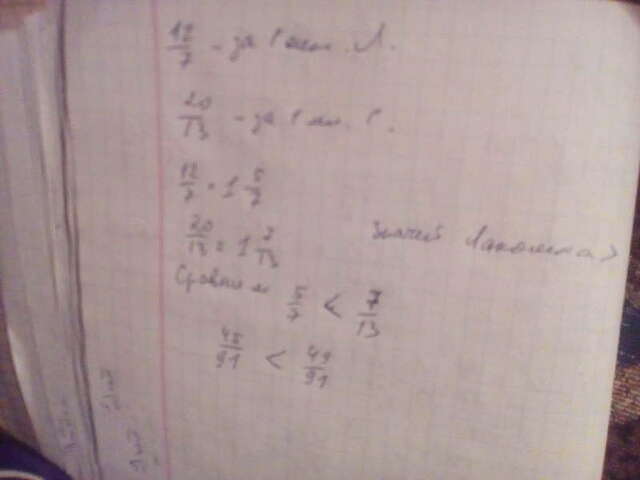 12/7 - за 1 мин. Л.
20/13 - за 1 мин. С.
12/7 = 1 5/7
20/13 = 1 7/13
Значит Лакомка >
Сравним 5/7 < 7/13
45/91 < 49/91